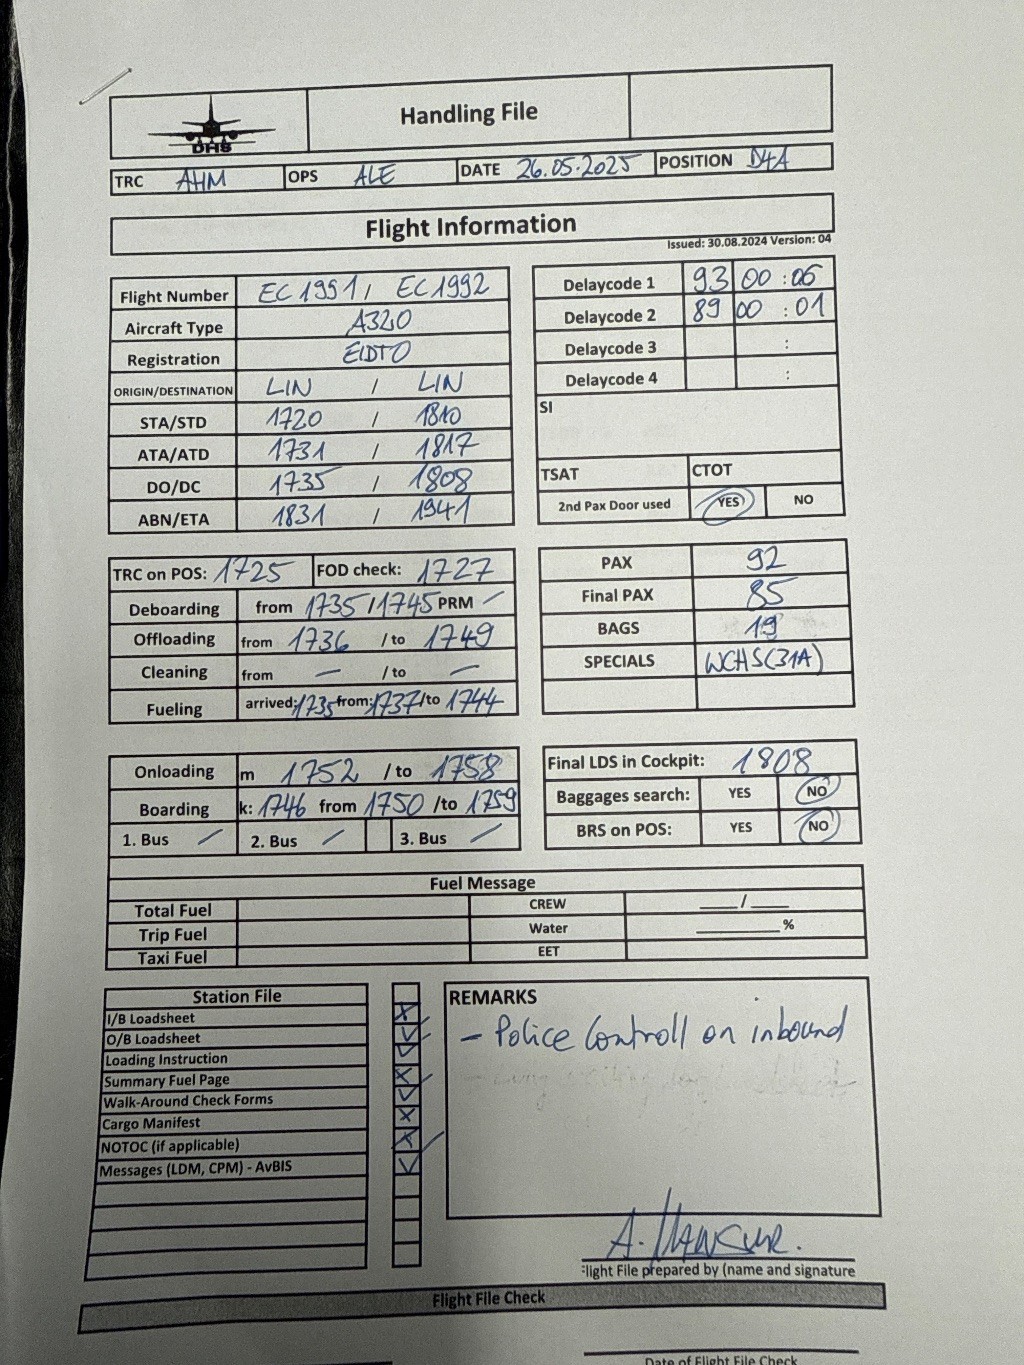 DHS
Handling File
TRC AHM OPS ALE DATE 26.05.2025 POSITION D4A
Flight Information
Issued: 30.08.2024 Version: 04
Flight Number EC 1991 / EC 1992
Aircraft Type A320
Registration EIDTO
ORIGIN/DESTINATION LIN / LIN
STA/STD 1720 / 1810
ATA/ATD 1731 / 1817
DO/DC 1735 / 1808
ABN/ETA 1831 / 1941
Delaycode 1 93 00 : 06
Delaycode 2 89 00 : 01
Delaycode 3 :
Delaycode 4 :
SI
TSAT CTOT
2nd Pax Door used YES NO
TRC on POS: 1725 FOD check: 1727
Deboarding from 1735 / 1745 PRM /
Offloading from 1736 / to 1749
Cleaning from — / to —
Fueling arrived: 1735 from: 1737 /to 1744
PAX 92
Final PAX 85
BAGS 19
SPECIALS WCHS(31A)
Onloading m 1752 / to 1758
Boarding k: 1746 from 1750 /to 1759
1. Bus / 2. Bus / 3. Bus /
Final LDS in Cockpit: 1808
Baggages search: YES NO
BRS on POS: YES NO
Fuel Message
Total Fuel CREW ___/___
Trip Fuel Water ______%
Taxi Fuel EET
Station File
I/B Loadsheet
O/B Loadsheet
Loading Instruction
Summary Fuel Page
Walk-Around Check Forms
Cargo Manifest
NOTOC (if applicable)
Messages (LDM, CPM) - AvBIS
REMARKS
- Police Controll on inbound
A. Mansur.
Flight File prepared by (name and signature
Flight File Check
Date of Flight File Check